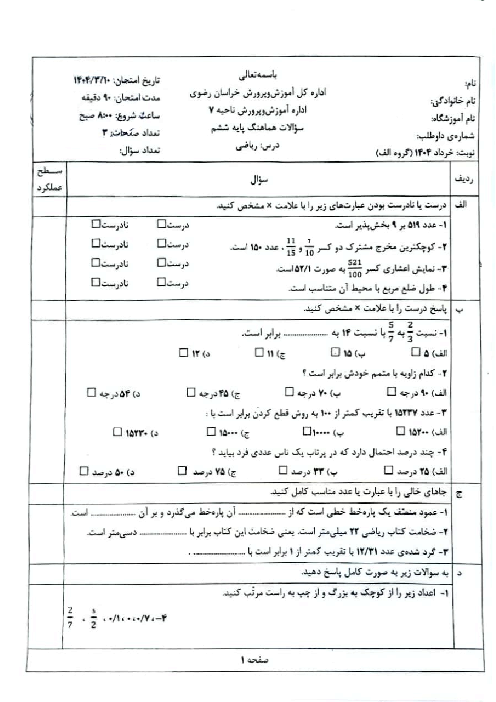 باسمه‌تعالی
نام:
نام خانوادگی:
نام آموزشگاه:
شماره‌ی داوطلب:
نوبت: خرداد ۱۴۰۴ (گروه الف)
اداره کل آموزش‌وپرورش خراسان رضوی
اداره آموزش‌وپرورش ناحیه ۷
سؤالات هماهنگ پایه ششم
درس: ریاضی
تاریخ امتحان: ۱۴۰۴/۳/۱۰
مدت امتحان: ۹۰ دقیقه
ساعت شروع: ۸:۰۰ صبح
تعداد صفحات: ۳
تعداد سؤال:
ردیف سؤال سطح عملکرد
الف درست یا نادرست بودن عبارت‌های زیر را با علامت × مشخص کنید.
۱- عدد ۵۱۹ بر ۹ بخش‌پذیر است. درست☐ نادرست☐
۲- کوچکترین مخرج مشترک دو کسر 1/10 و 11/15، عدد ۱۵۰ است. درست☐ نادرست☐
۳- نمایش اعشاری کسر 521/100 به صورت ۵۲/۱ است. درست☐ نادرست☐
۴- طول ضلع مربع با محیط آن متناسب است. درست☐ نادرست☐
ب پاسخ درست را با علامت × مشخص کنید.
۱- نسبت 2/3 به 5/7 با نسبت ۱۴ به .................. برابر است.
الف) ۵ ☐ ب) ۱۵ ☐ ج) ۱۱ ☐ د) ۱۲ ☐
۲- کدام زاویه با متمم خودش برابر است ؟
الف) ۹۰ درجه ☐ ب) ۷۰ درجه ☐ ج) ۴۵ درجه ☐ د) ۵۴ درجه ☐
۳- عدد ۱۵۲۳۷ با تقریب کمتر از ۱۰۰ به روش قطع کردن برابر است با :
الف) ۱۵۲۰۰ ☐ ب) ۱۰۰۰۰ ☐ ج) ۱۵۰۰۰ ☐ د) ۱۵۲۳۰ ☐
۴- چند درصد احتمال دارد که در پرتاب یک تاس عددی فرد بیاید ؟
الف) ۲۵ درصد ☐ ب) ۳۳ درصد ☐ ج) ۷۵ درصد ☐ د) ۵۰ درصد ☐
ج جاهای خالی را با عبارت یا عدد مناسب کامل کنید.
۱- عمود منصّف یک پاره‌خط خطی است که از .................. آن پاره‌خط می‌گذرد و بر آن .................. است.
۲- ضخامت کتاب ریاضی ۲۲ میلی‌متر است. یعنی ضخامت این کتاب برابر با .................. دسی‌متر است.
۳- گرد شده‌ی عدد ۱۲/۳۱ با تقریب کمتر از ۱ برابر است با .................. .
د به سوالات زیر به صورت کامل پاسخ دهید.
۱- اعداد زیر را از کوچک به بزرگ و از چپ به راست مرتّب کنید.
صفحه ۱